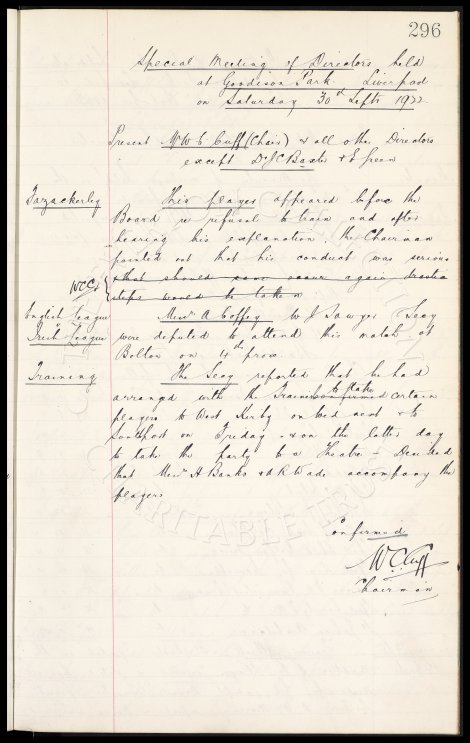 296
Special Meeting of Directors held
at Goodison Park Liverpool
on Saturday 30th Septr 1922
Present Mr W C Cuff (Chair) & all other Directors
except Dr J C Baxter & E Green
Fazackerley This player appeared before the
Board re refusal to train and after
hearing his explanation, the Chairman
pointed out that his conduct was serious
WCC & that should same occur again drastic
steps would be taken
English League v Irish League Messrs A Coffey W J Sawyer Secy
were deputed to attend this match at
Bolton on 4th prox.
Training The Secy reported that he had
arranged with the Trainer to take certain
players to West Kirby on Wed next & to
Southport on Friday & on the latter day
to take the party to a Theatre – Decided
that Messrs H Banks & A R Wade accompany the
players
Confirmed
W C Cuff
Chairman
CHARITABLE TRUST